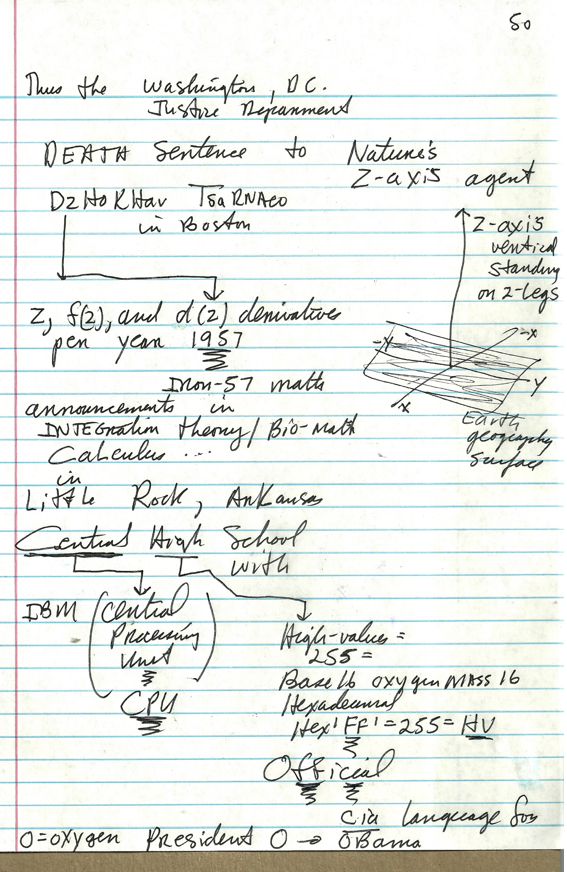 50
Thus the Washington, D.C.
Justice Department
DEATH Sentence to Nature's
Z-axis agent
DzHoKHar TsaRNAeo
in Boston
Z-axis
vertical
standing
on 2-legs
Z, f(z), and d(z) derivatives
per year 1957
-x
-Y
Y
x
Iron-57 math
announcements in
INTEGRation theory/Bio-Math
Calculus ...
in
Earth
geography
Surface
Little Rock, ArKansas
Central High School
with
IBM (Central
Processing
Unit)
CPU
High-values =
255 =
Base 16 oxygen MASS 16
Hexadecimal
Hex 'FF' = 255 = HV
Official
cia language for
O=oxygen President O → OBama